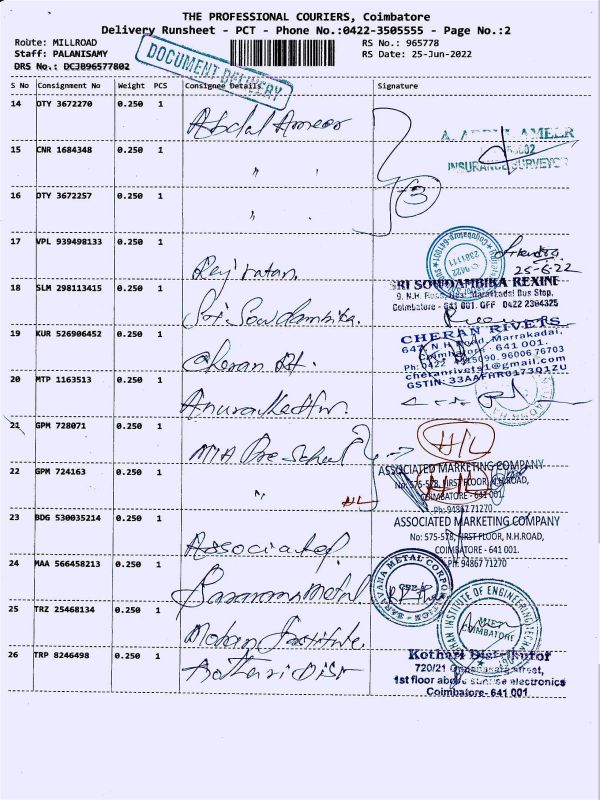 THE PROFESSIONAL COURIERS, Coimbatore
Delivery Runsheet - PCT - Phone No.:0422-3505555 - Page No.:2
Route: MILLROAD
RS No.: 965778
Staff: PALANISAMY
RS Date: 25-Jun-2022
DRS No.: DCJB96577802
DOCUMENT DELIVERY
S No Consignment No Weight PCS Consignee Details Signature
14 DTY 3672270 0.250 1
Abdal Ameer
15 CNR 1684348 0.250 1
"
INSURANCE SURVEYOR
16 DTY 3672257 0.250 1
"
3
17 VPL 939498133 0.250 1
Raj ratan
25-6-22
18 SLM 298113415 0.250 1
Sri Sowdambika
SRI SOWDAMBIKA REXINE
9. N.H. Road, Near Marakadai Bus Stop,
Coimbatore - 641 001. OFF 0422 2304325
19 KUR 526906452 0.250 1
Cheran Rt.
CHERAN RIVETS
647, N.H. Road, Marrakadai,
Coimbatore - 641 001.
96006 76703
cheranrivets1@gmail.com
GSTIN: 33AAFHR0173Q1ZU
20 MTP 1163513 0.250 1
21 GPM 728071 0.250 1
MIA Pre School
H/L
22 GPM 724163 0.250 1
"
H/L
H/L
ASSOCIATED MARKETING COMPANY
No: 575-578, FIRST FLOOR, N.H.ROAD,
COIMBATORE - 641 001.
Ph: 94867 71270
23 BDG 530035214 0.250 1
Associated
ASSOCIATED MARKETING COMPANY
No: 575-578, FIRST FLOOR, N.H.ROAD,
COIMBATORE - 641 001.
Ph: 94867 71270
24 MAA 566458213 0.250 1
Saravana Metal
25 TRZ 25468134 0.250 1
Mohan Institute.
COIMBATORE
26 TRP 8246498 0.250 1
Kothari Dist
Kothari Distributor
1st floor above sunrise electronics
Coimbatore- 641 001